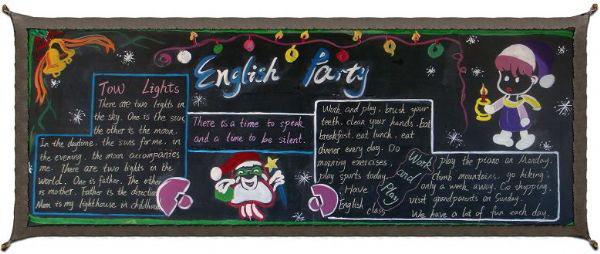 English Party
Tow Lights
There are two lights in
the sky. One is the sun,
the other is the moon.
In the daytime, the suns for me. in
the evening, the moon accompanies
me. There are two lights in the
world. One is father. The other
is mother. Father is the direction
Mom is my lighthouse in
There is a time to speak
and a time to be silent.
Work and play, brush your
teeth, clean your hands. Eat
breakfast, eat lunch, eat
dinner every day. Do
morning exercises,
play sports today.
Have
English class
Work
and
Play
play the piano on Monday.
Climb mountains, go hiking,
only a week away. Go shopping,
visit grandparents on Sunday.
We have a lot of fun each day.